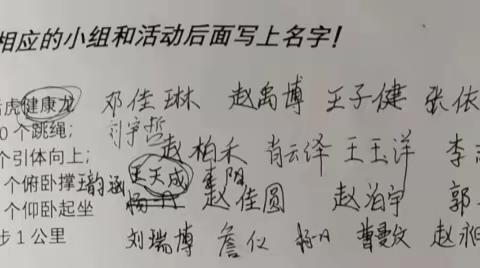 相应的小组和活动后面写上名字！
虎健康龙 邓佳琳 赵禹博 王子健 张依
0个跳绳； 刘宇哲
个引体向上； 赵柏禾 肖云泽 王玉洋 李
个俯卧撑 王韵涵 王天成
个仰卧起坐 杨 赵佳圆 赵泊宇 郭
步1公里 刘瑞博 詹仪 杨 曹曼妏 赵